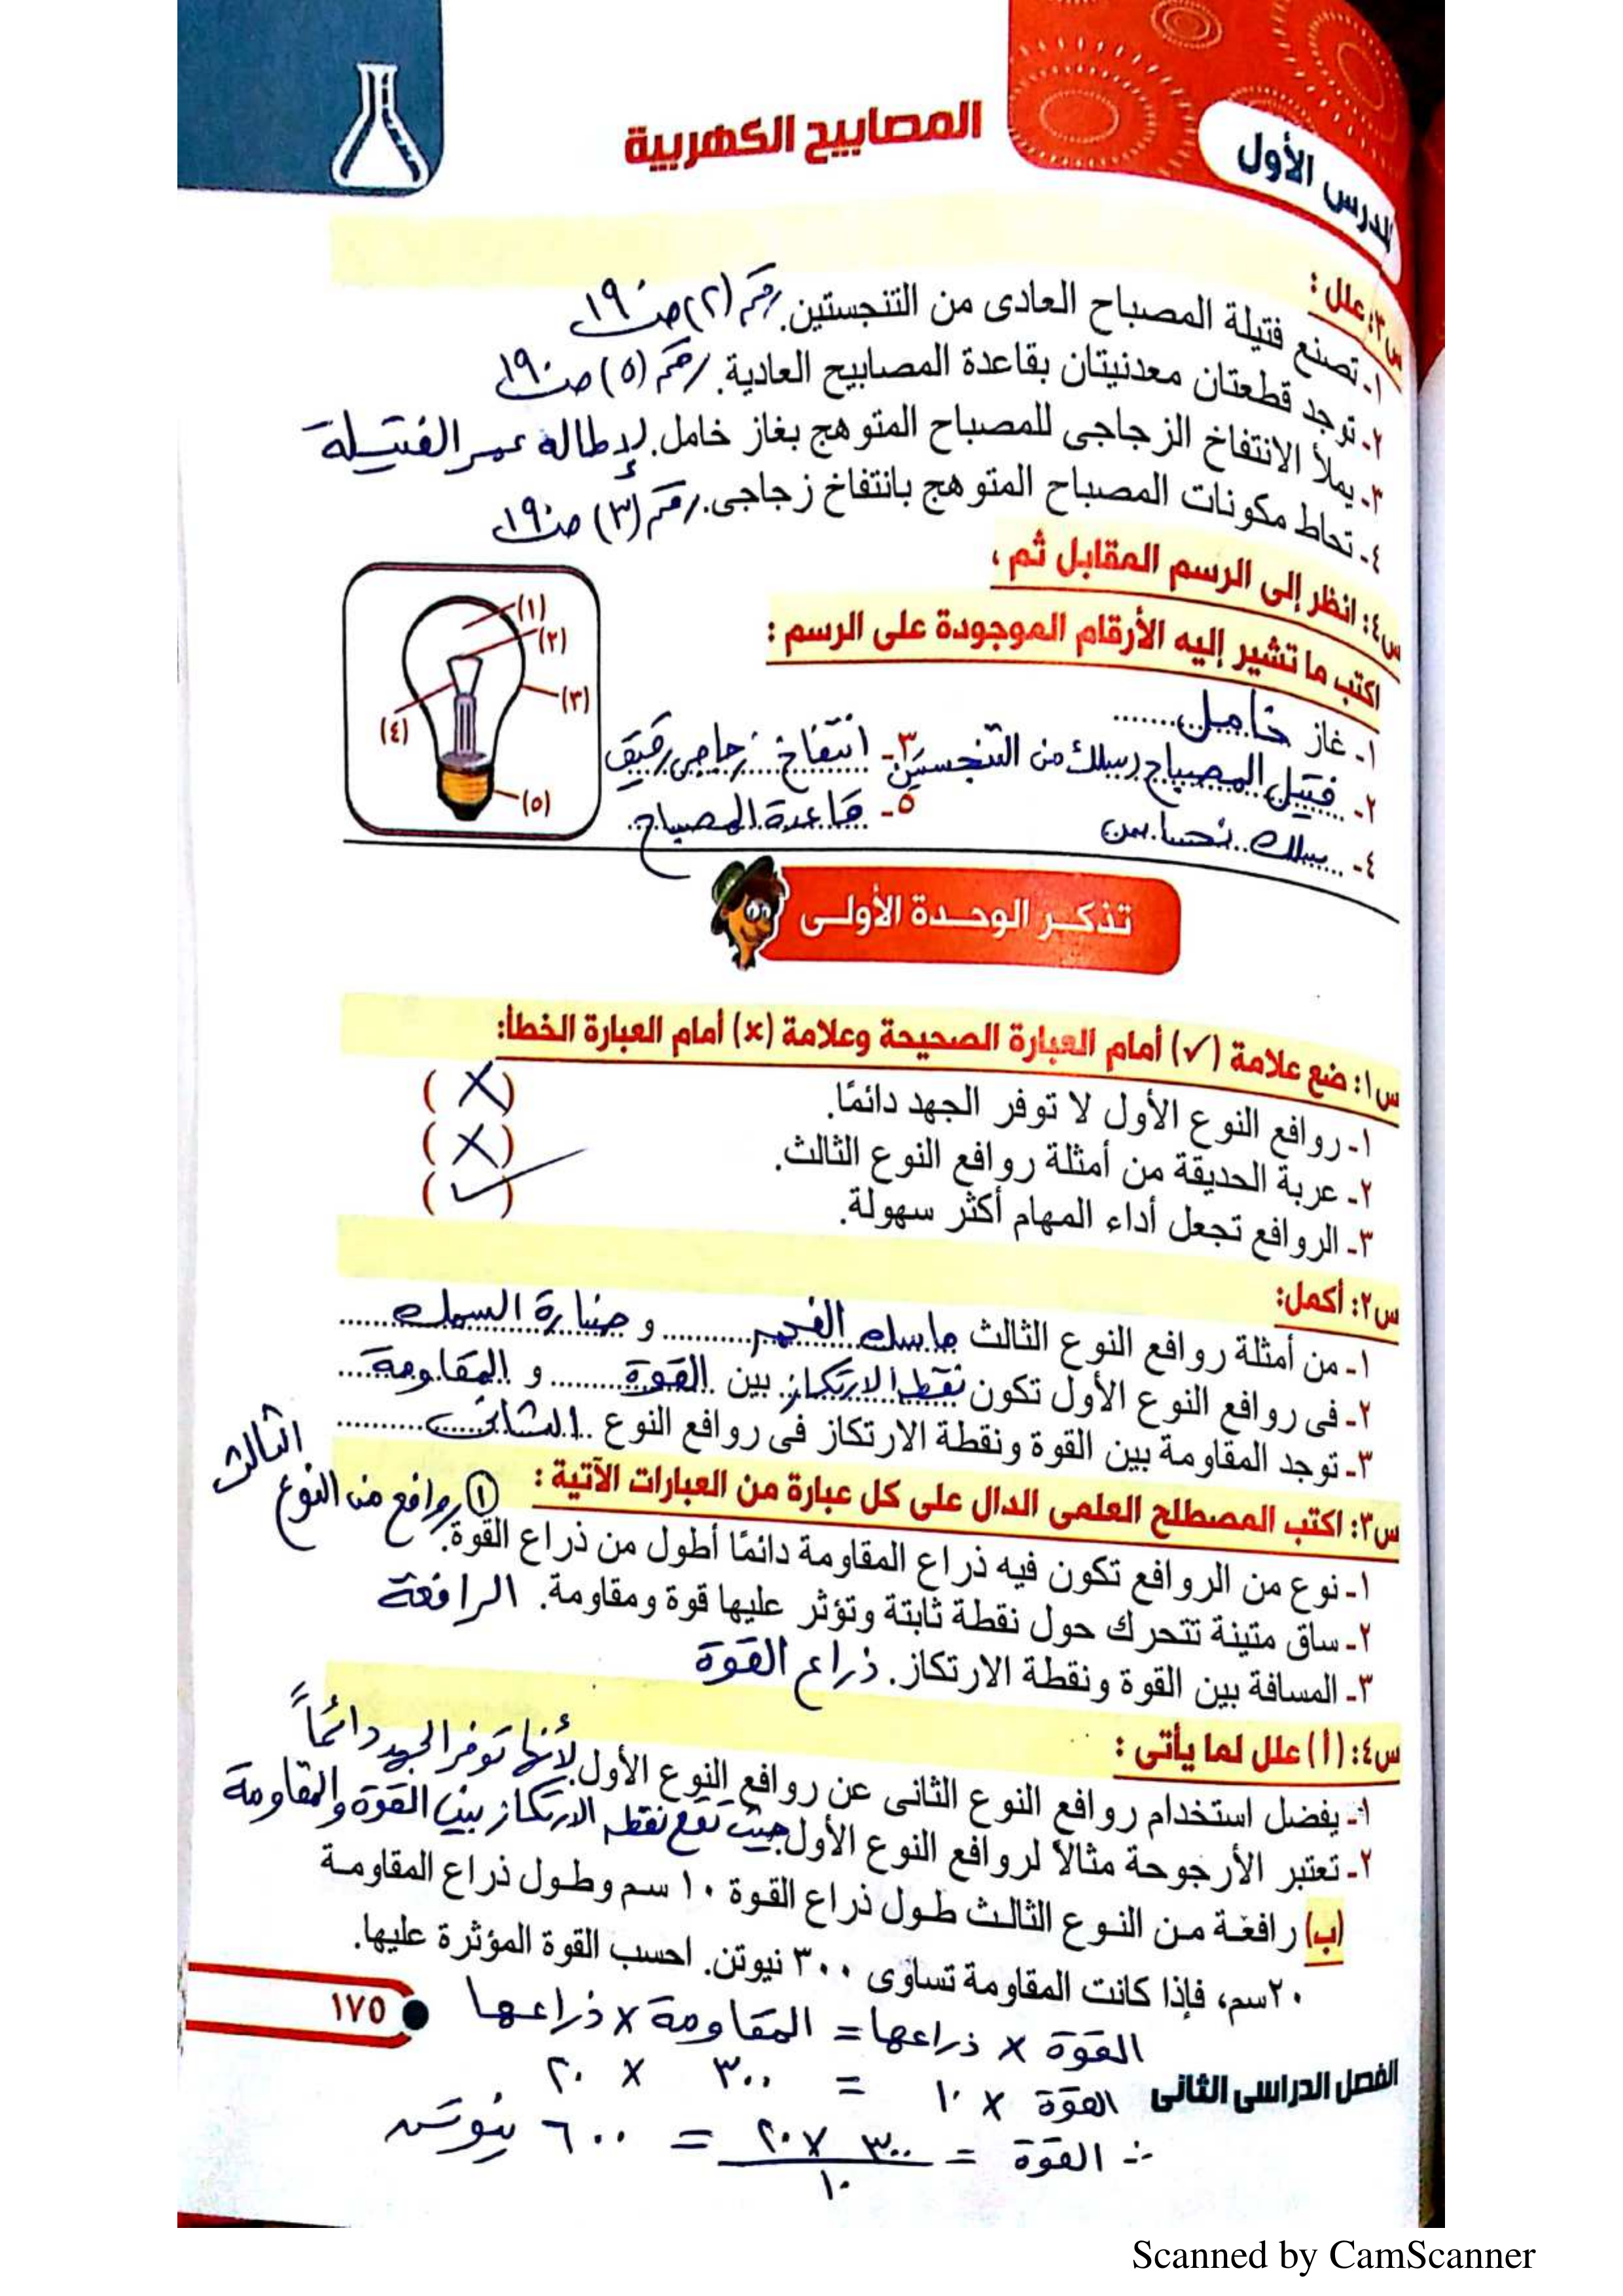 المصابيح الكهربية
الدرس الأول
س٣: علل :
١- تصنع فتيلة المصباح العادى من التنجستين. رقم (٢) ص ١٩٠
٢- توجد قطعتان معدنيتان بقاعدة المصابيح العادية. رقم (٥) ص ١٩٠
٣- يملأ الانتفاخ الزجاجى للمصباح المتوهج بغاز خامل. لإطالة عمر الفتيلة
٤- تحاط مكونات المصباح المتوهج بانتفاخ زجاجى. رقم (٣) ص ١٩٠
س٤: انظر إلى الرسم المقابل ثم ،
اكتب ما تشير إليه الأرقام الموجودة على الرسم :
(١)
(٢)
(٣)
(٤)
(٥)
١- غاز خامل
٢- فتيل المصباح سلك من التنجستين ٣- انتفاخ زجاجى رقيق
٤- سلك نحاس ٥- قاعدة المصباح
تذكر الوحدة الأولى
س١: ضع علامة (✓) أمام العبارة الصحيحة وعلامة (×) أمام العبارة الخطأ:
١- روافع النوع الأول لا توفر الجهد دائمًا. (×)
٢- عربة الحديقة من أمثلة روافع النوع الثالث. (×)
٣- الروافع تجعل أداء المهام أكثر سهولة. (✓)
س٢: أكمل:
١- من أمثلة روافع النوع الثالث ماسك الفحم و صنارة السمك
٢- فى روافع النوع الأول تكون نقطة الارتكاز بين القوة و المقاومة
٣- توجد المقاومة بين القوة ونقطة الارتكاز فى روافع النوع الثانى
س٣: اكتب المصطلح العلمى الدال على كل عبارة من العبارات الآتية : ① روافع من النوع الثالث
١- نوع من الروافع تكون فيه ذراع المقاومة دائمًا أطول من ذراع القوة.
٢- ساق متينة تتحرك حول نقطة ثابتة وتؤثر عليها قوة ومقاومة. الرافعة
٣- المسافة بين القوة ونقطة الارتكاز. ذراع القوة
س٤: (أ) علل لما يأتى :
١- يفضل استخدام روافع النوع الثانى عن روافع النوع الأول. لأنها توفر الجهد دائمًا
٢- تعتبر الأرجوحة مثالاً لروافع النوع الأول. حيث تقع نقطة الارتكاز بين القوة والمقاومة
(ب) رافعة من النوع الثالث طول ذراع القوة ١٠ سم وطول ذراع المقاومة
٢٠سم، فإذا كانت المقاومة تساوى ٣٠٠ نيوتن. احسب القوة المؤثرة عليها.
القوة × ذراعها = المقاومة × ذراعها
القوة × ١٠ = ٣٠٠ × ٢٠
∴ القوة = ٣٠٠ × ٢٠ / ١٠ = ٦٠٠ نيوتن
١٧٥
الفصل الدراسى الثانى
Scanned by CamScanner